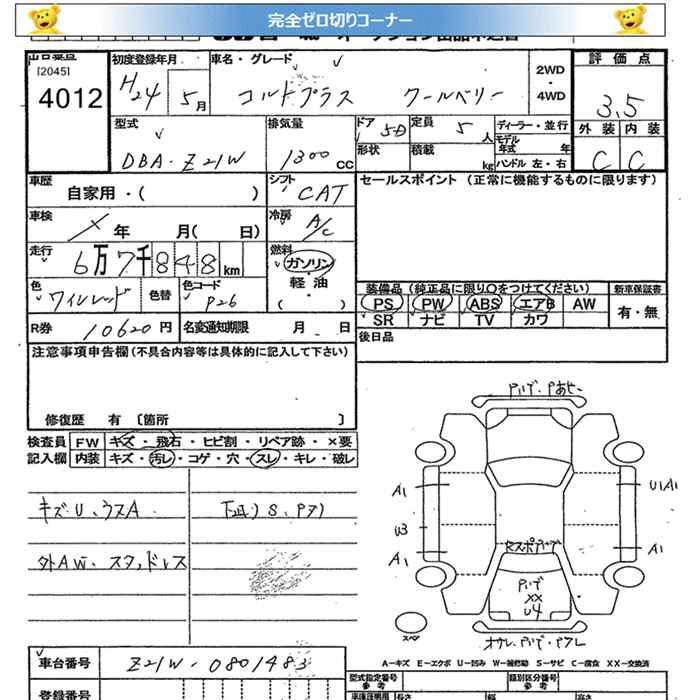 完全ゼロ切りコーナー
[2045]
4012
初度登録年月 H24 5月
車名・グレード コルトプラス クールベリー
2WD・4WD
評価点 3.5
外装 C 内装 C
型式 DBA-Z21W
排気量 1300 CC
ドア 5D
定員 5人
ディーラー・並行
モデル年式 年
形状
積載 kg
ハンドル 左・右
車歴 自家用・( )
シフト CAT
セールスポイント (正常に機能するものに限ります)
車検 年 月( 日)
冷房 A/C
走行 6万7千848km
燃料 ガソリン・軽油・( )
色 ワインレッド
色替
色コード P26
装備品(純正品に限り○をつけてください)
新車保証書
PS PW ABS エアB AW
有・無
SR ナビ TV カワ
R券 10620円
名変通知期限 月 日
後日品
注意事項申告欄(不具合内容等は具体的に記入して下さい)
修復歴 有 〔箇所 〕
検査員 FW キズ・飛石・ヒビ割・リペア跡・×要
記入欄 内装 キズ・汚レ・コゲ・穴・スレ・キレ・破レ
キズU、ウスA
下廻りS、
外AW・スタッドレス
A1
U3
A1
U1A1
A1
XX
U4
スペア
車台番号 Z21W-0801483
A-キズ E-エクボ U-凹み W-補修跡 S-サビ C-腐食 XX-交換済
登録番号
型式指定番号 参考
類別区分番号 参考